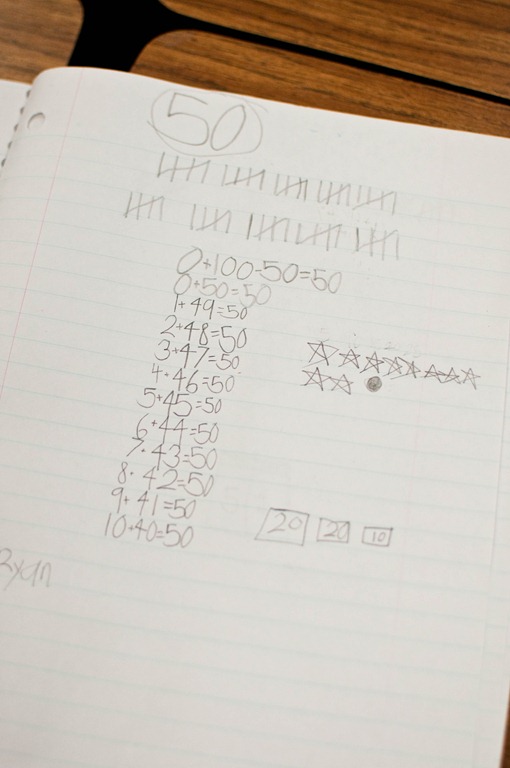 50
0+100-50=50
0+50=50
1+49=50
2+48=50
3+47=50
4+46=50
5+45=50
6+44=50
7+43=50
8+42=50
9+41=50
10+40=50
20 20 10
Ryan